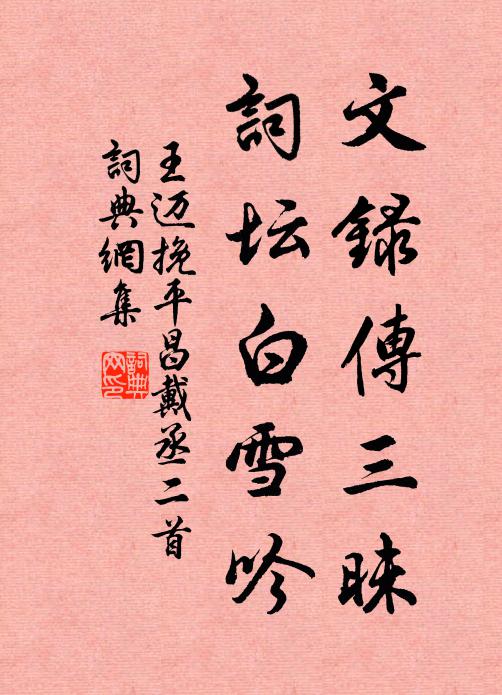 文録傳三昧
詞坛白雪吟
王迈挽平昌戴丞二首
詞典網集
詞典网印